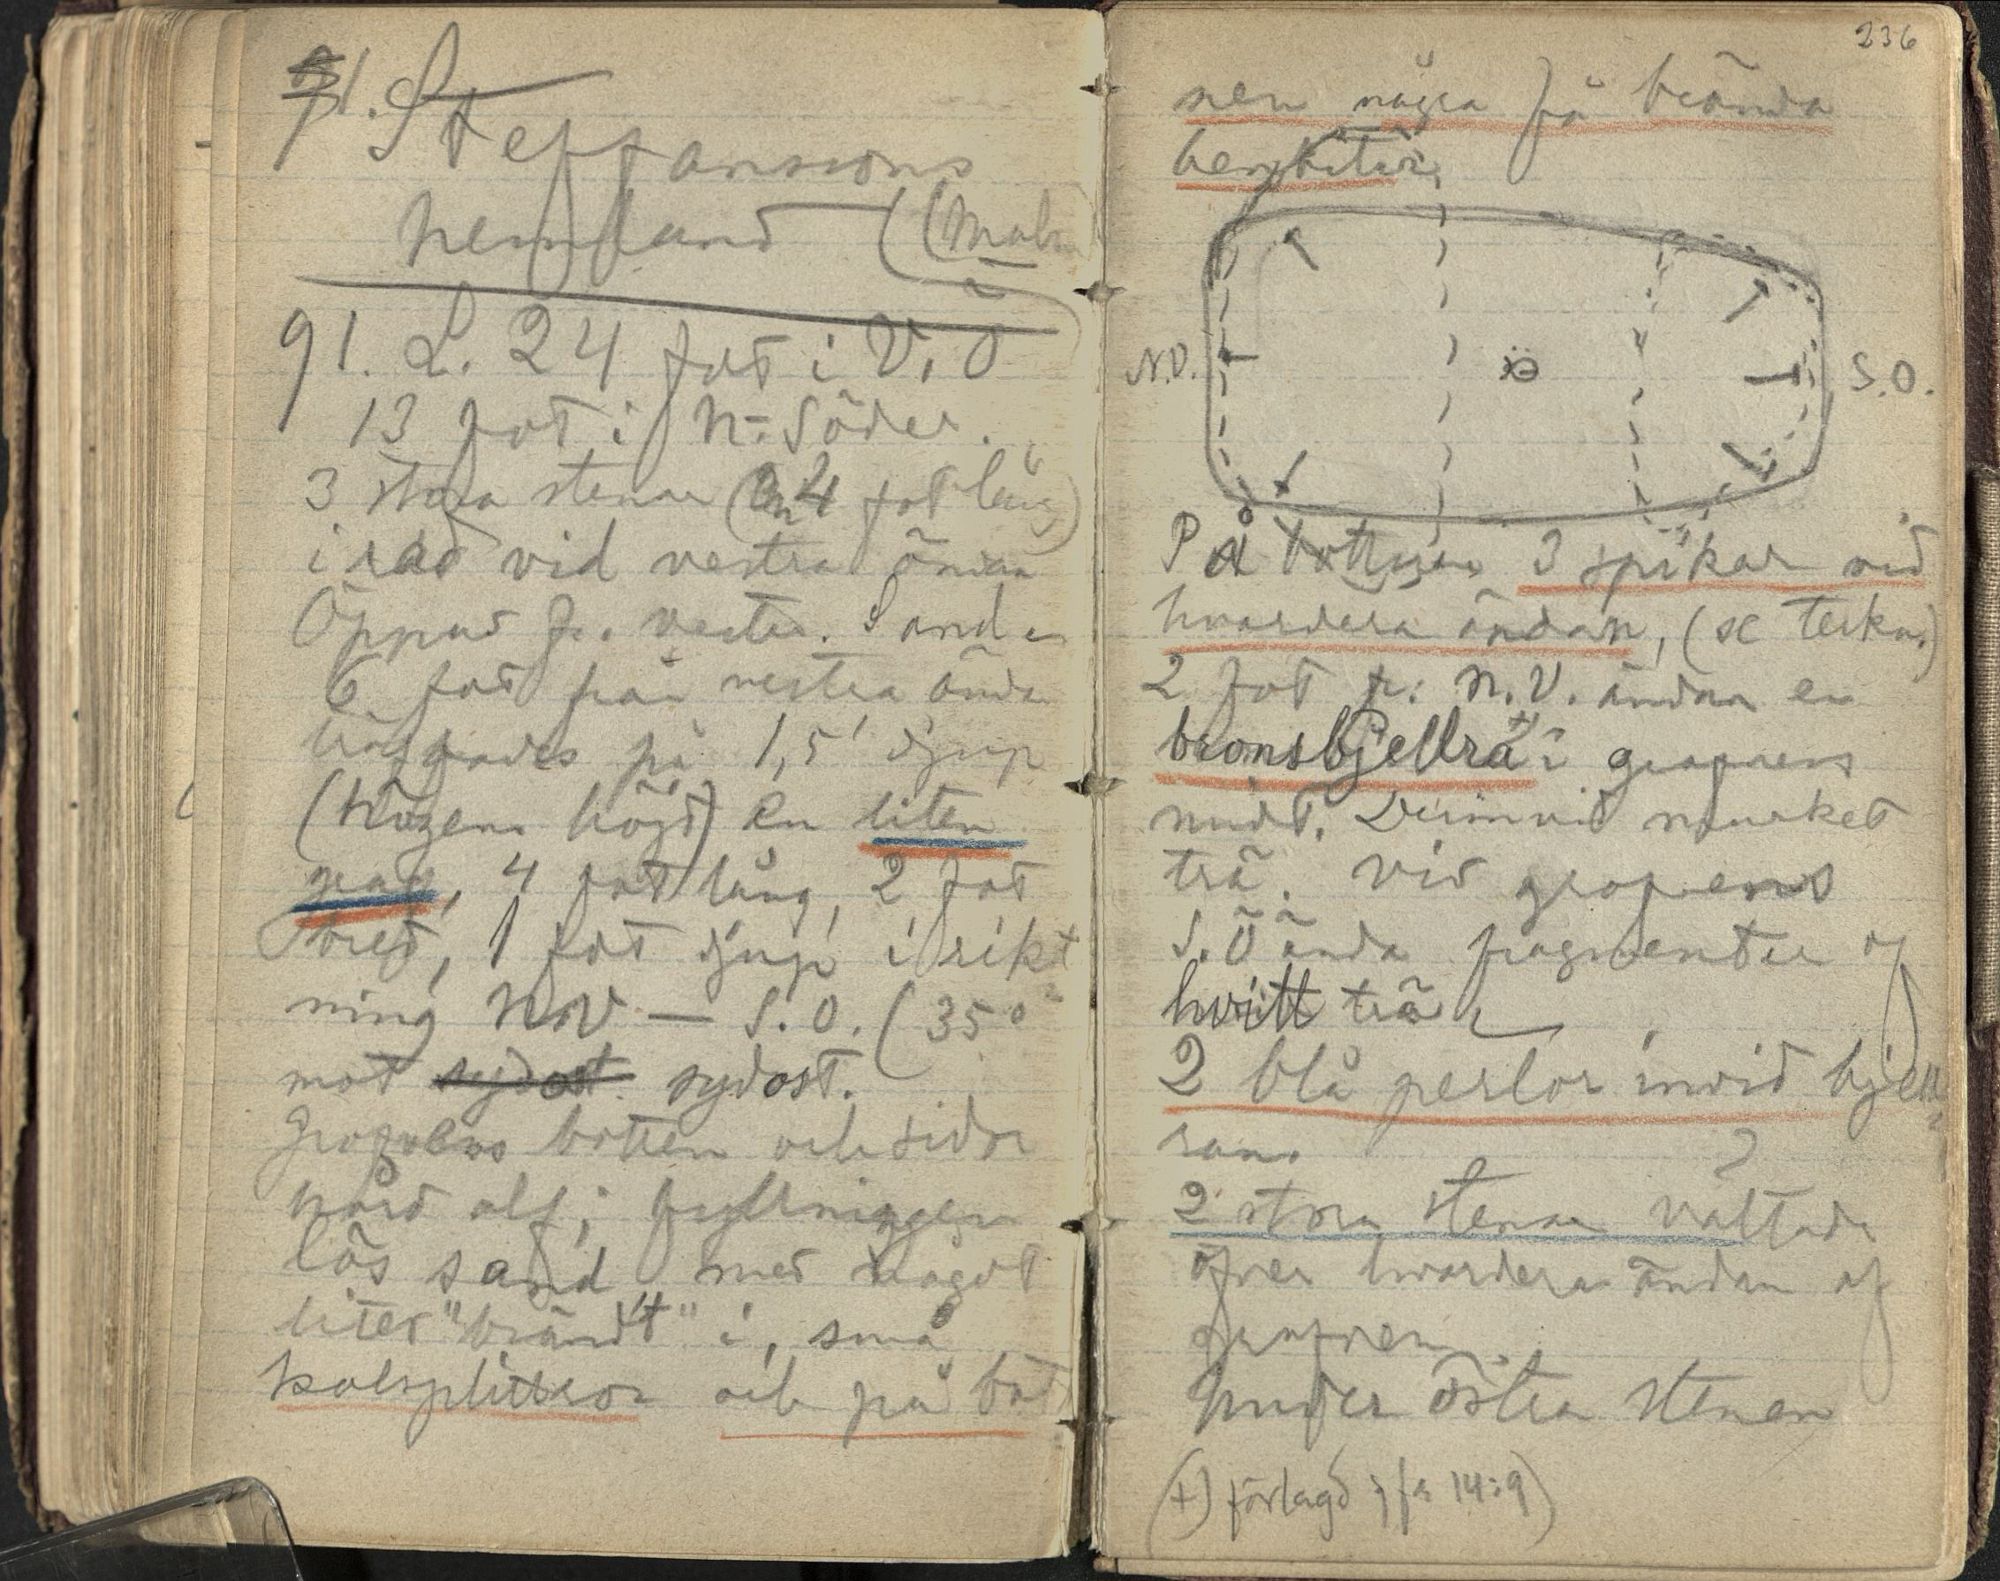 91. Steffansons
hemland (Malm
91. L. 24 fot i V. Ö
13 fot i N-Söder.
3 stora stenar (en 4 fot lång)
i rad vid vestra ändan
Öppnad fr. vester. Sand
6 fot från vestra ända
på 1,5' djup
(högens höjd) en liten
grop, 4 fot lång, 2 fot
bred, 1 fot djup i rikt
ning N.V — S.O. (35°
mot sydost sydost.
Gropens botten och sidor
hård alf; fyllningen
lös sand med något
litet "brändt" i, små
kolsplittror och på bott
236
nen några få brända
benbitar.
N.V. S.O.
På bottnen 3 spikar vid
hvardera ändan, (se teckn.)
2 fot fr. N.V. ändan en
bronsbjellra +) i gropens
midt. Derinvid murket
trä. Vid gropens
S.Ö ända fragmenter af
hvitt trä
2 blå perlor invid bjell
ran. ?
2 stora stenar vältade
öfver hvardera ändan af
gropen.
Under östra stenen
(+) förlagd; jfr 14:9)